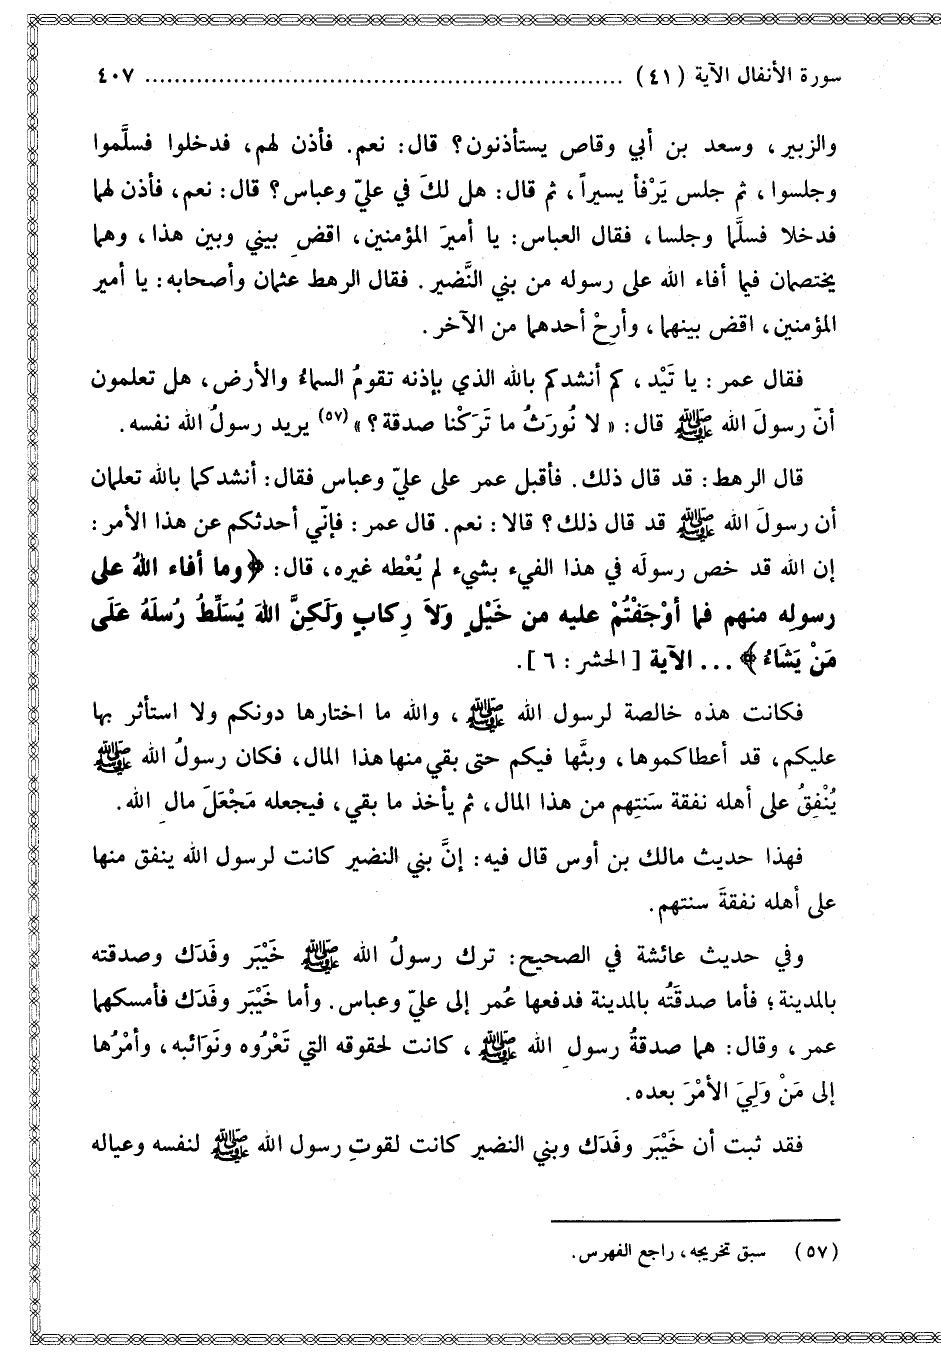 سورة الأنفال الآية (٤١) ........................................................ ٤٠٧
والزبير، وسعد بن أبي وقاص يستأذنون؟ قال: نعم. فأذن لهم، فدخلوا فسلَّموا
وجلسوا، ثم جلس يَرْفأ يسيراً، ثم قال: هل لكَ في عليّ وعباس؟ قال: نعم، فأذن لهما
فدخلا فسلَّما وجلسا، فقال العباس: يا أميرَ المؤمنين، اقضِ بيني وبين هذا، وهما
يختصمان فيما أفاء الله على رسوله من بني النَّضير. فقال الرهط عثمان وأصحابه: يا أمير
المؤمنين، اقض بينهما، وأرِحْ أحدهما من الآخر.
فقال عمر: يا تَيْد، كم أنشدكم بالله الذي بإذنه تقومُ السماءُ والأرض، هل تعلمون
أنّ رسولَ الله ﷺ قال: «لا نُورَثُ ما تَرَكْنا صدقة؟» (٥٧) يريد رسولُ الله نفسه.
قال الرهط: قد قال ذلك. فأقبل عمر على عليّ وعباس فقال: أنشدكما بالله تعلمان
أن رسولَ الله ﷺ قد قال ذلك؟ قالا: نعم. قال عمر: فإنّي أحدثكم عن هذا الأمر:
إن الله قد خص رسولَه في هذا الفيء بشيء لم يُعْطه غيره، قال: ﴿وما أفاء اللهُ على
رسولِه منهم فما أوْجَفْتُمْ عليه من خَيْلٍ وَلاَ رِكابٍ ولَكِنَّ اللهَ يُسَلِّطُ رُسلَهُ عَلَى
مَنْ يَشَاءُ﴾ ... الآية [الحشر: ٦].
فكانت هذه خالصة لرسول الله ﷺ، والله ما اختارها دونكم ولا استأثر بها
عليكم، قد أعطاكموها، وبثَّها فيكم حتى بقي منها هذا المال، فكان رسولُ الله ﷺ
يُنْفِقُ على أهله نفقة سَنَتِهم من هذا المال، ثم يأخذ ما بقي، فيجعله مَجْعَلَ مالِ الله.
فهذا حديث مالك بن أوس قال فيه: إنَّ بني النضير كانت لرسول الله ينفق منها
على أهله نفقةَ سنتهم.
وفي حديث عائشة في الصحيح: ترك رسولُ الله ﷺ خَيْبَر وفَدَك وصدقته
بالمدينة؛ فأما صدقَتُه بالمدينة فدفعها عُمر إلى عليّ وعباس. وأما خَيْبَر وفَدَك فأمسكهما
عمر، وقال: هما صدقةُ رسولِ الله ﷺ، كانت لحقوقه التي تَعْرُوه ونَوَائبه، وأمْرُها
إلى مَنْ وَلِيَ الأمْرَ بعده.
فقد ثبت أن خَيْبَر وفَدَك وبني النضير كانت لقوتِ رسول الله ﷺ لنفسه وعياله
(٥٧) سبق تخريجه، راجع الفهرس.